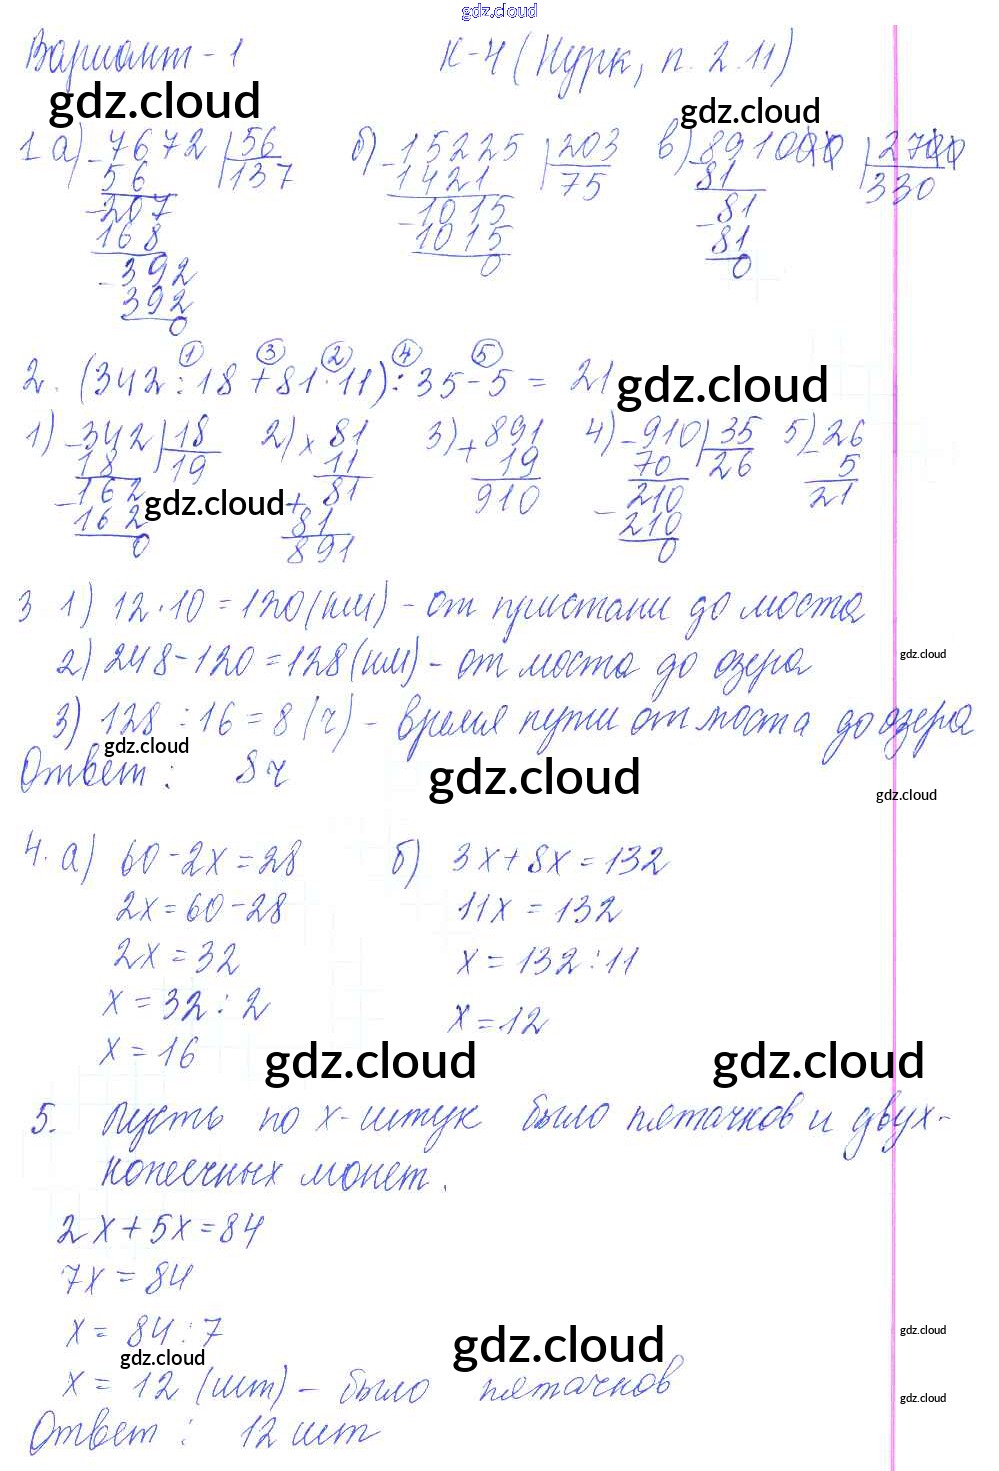 gdz.cloud
Вариант - 1 К-4 (Нурк, п. 2.11)
gdz.cloud gdz.cloud
1 а) -7672 |56 б) -15225 |203 в) -891000 |2700
56 137 1421 75 81 330
-207 -1015 -81
168 1015 81
-392 0 0
392
0
① ③ ② ④ ⑤
2. (342 : 18 + 81 · 11) : 35 - 5 = 21 gdz.cloud
1) -342 |18 2) x 81 3) + 891 4) -910 |35 5) -26
18 19 11 19 70 26 5
-162 gdz.cloud + 81 910 -210 21
162 81 210
0 891 0
3 1) 12 · 10 = 120 (км) - от пристани до моста
2) 248 - 120 = 128 (км) - от моста до озера gdz.cloud
3) 128 : 16 = 8 (ч) - время пути от моста до озера
gdz.cloud
Ответ : 8 ч gdz.cloud gdz.cloud
4. а) 60 - 2x = 28 б) 3x + 8x = 132
2x = 60 - 28 11x = 132
2x = 32 x = 132 : 11
x = 32 : 2 x = 12
x = 16 gdz.cloud gdz.cloud
5. Пусть по x - штук было пятачков и двух-
копеечных монет.
2x + 5x = 84
7x = 84
x = 84 : 7 gdz.cloud gdz.cloud
gdz.cloud
x = 12 (шт) - было пятачков gdz.cloud
Ответ : 12 шт